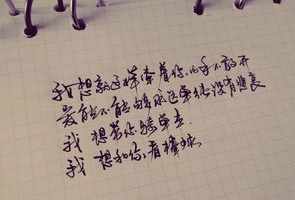 我想就这样牵着你的手不放开
爱能不能够永远单纯没有悲哀
我 想带你骑单车
我 想和你看棒球